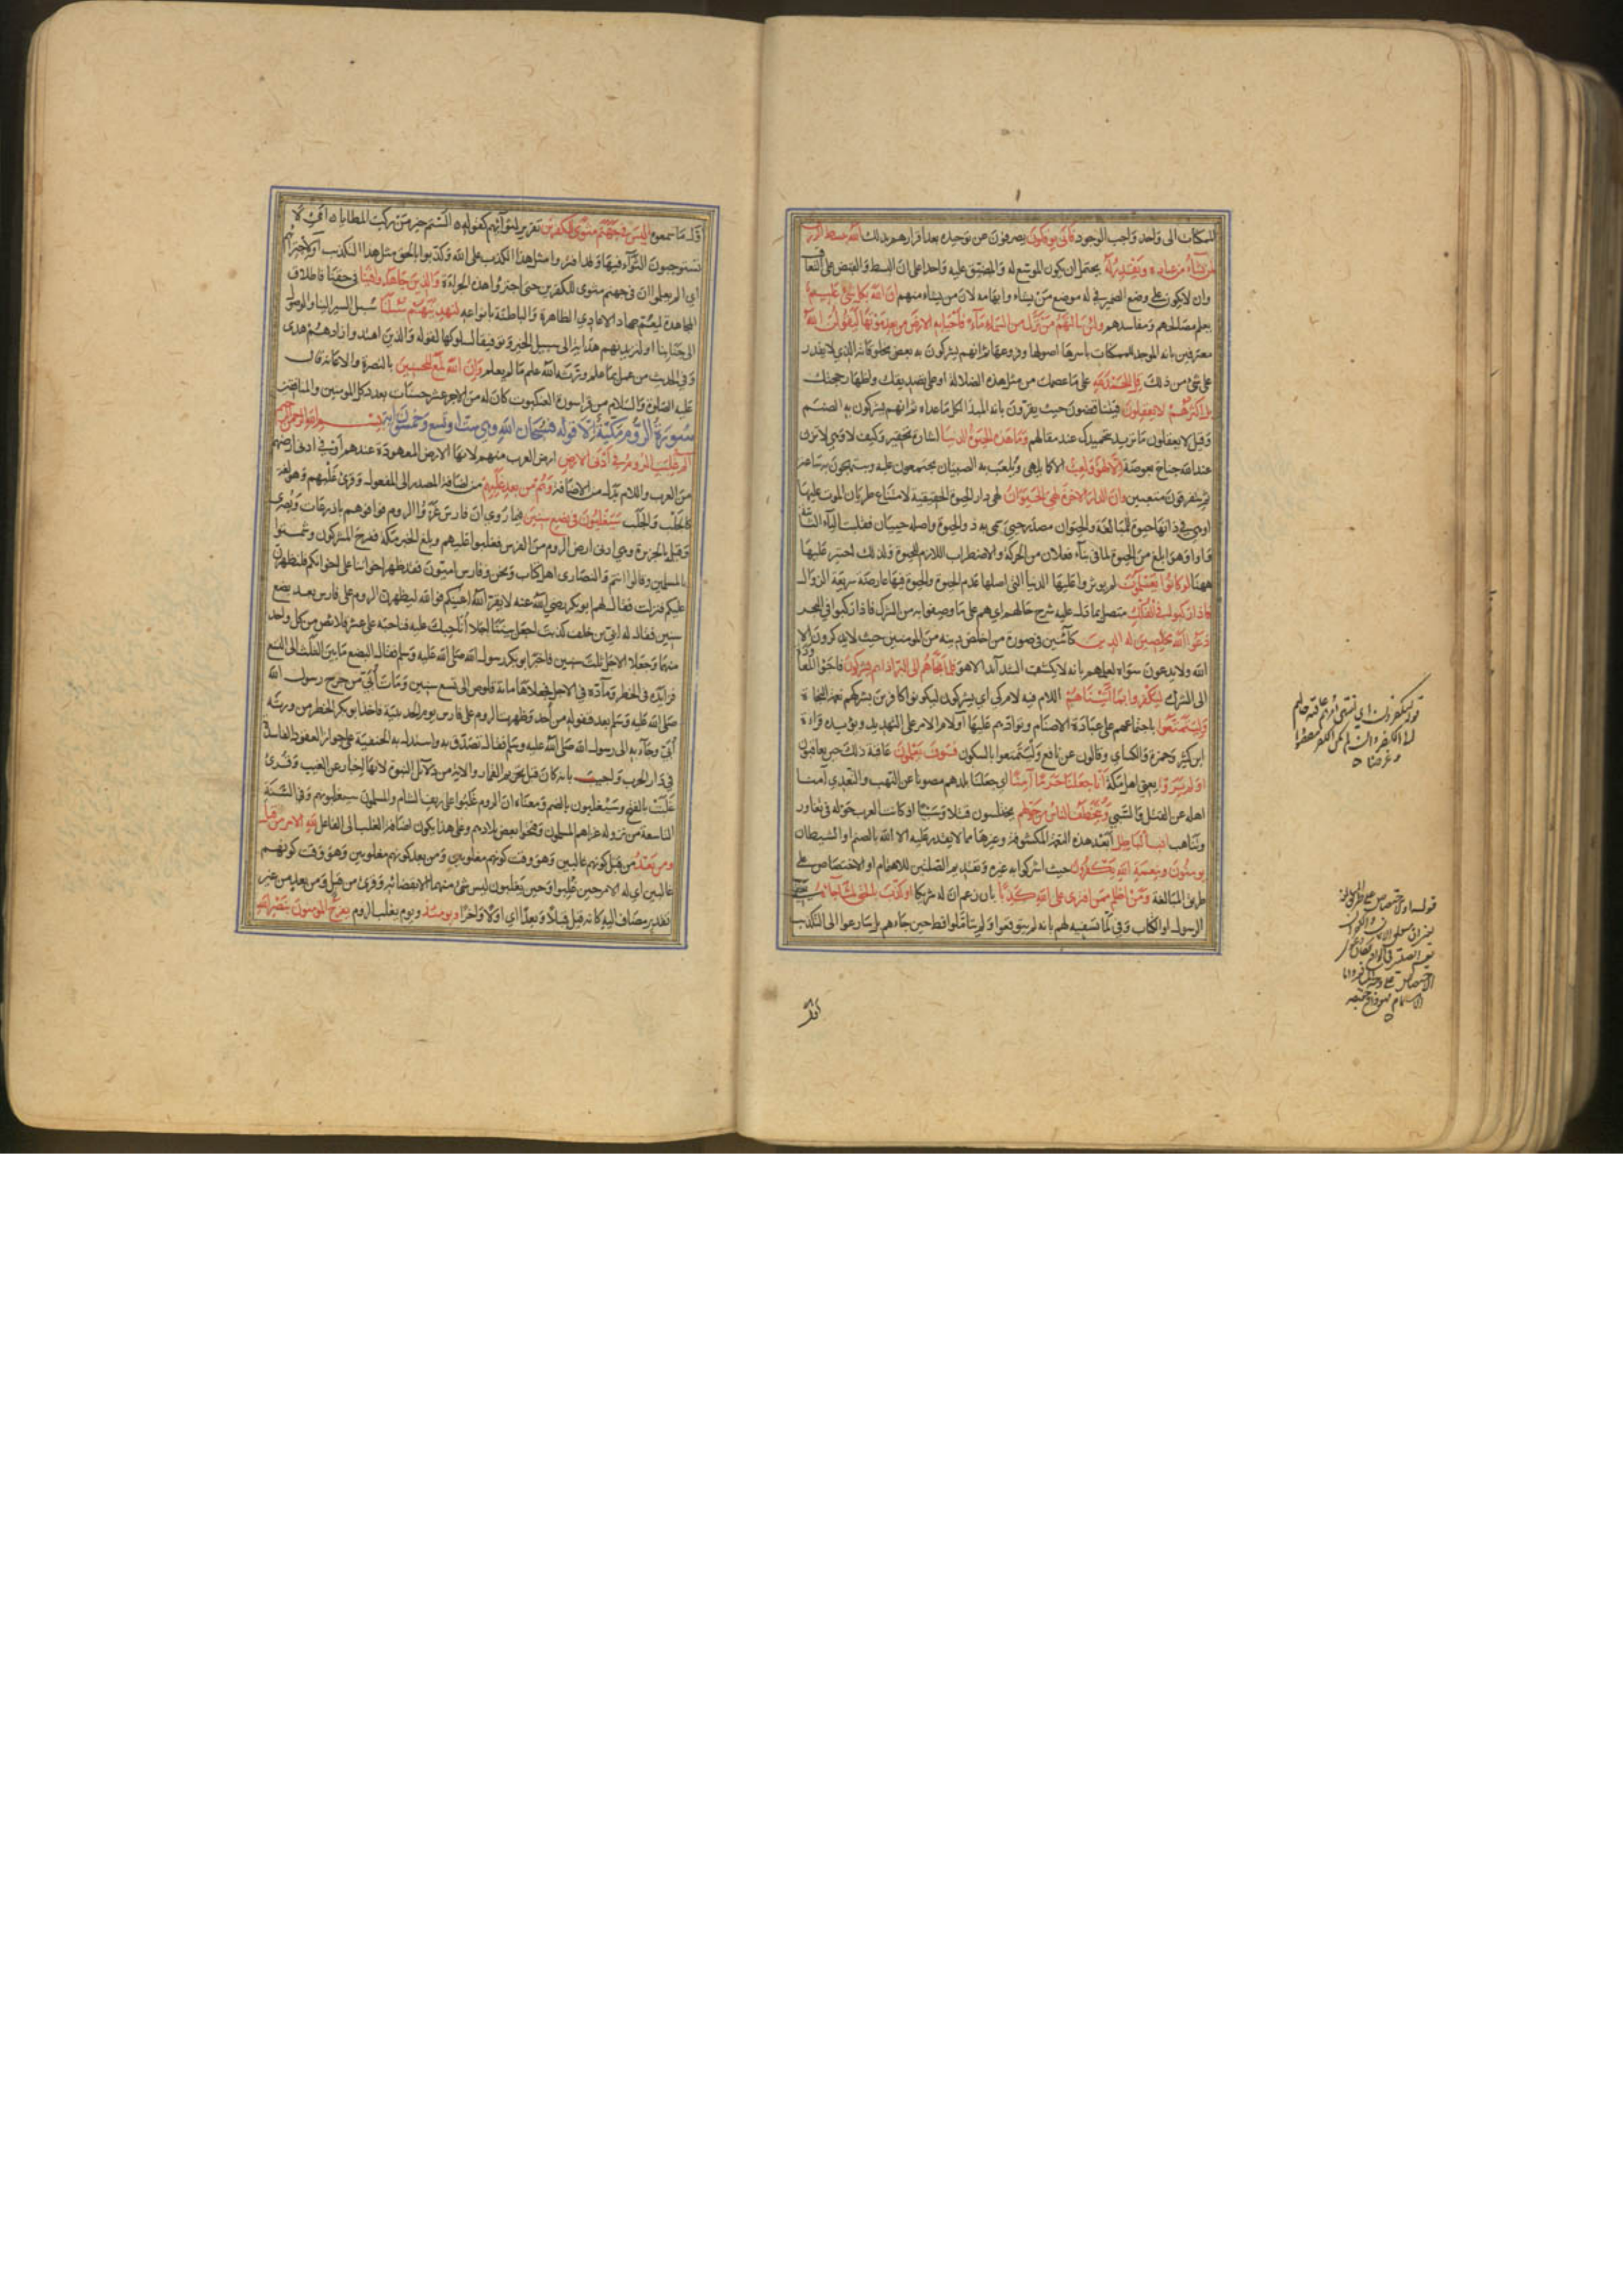 الممكنات الى واحد واجب الوجود فاني يؤفكون يصرفون عن توحيده بعد اقرارهم بذلك الله يبسط الرزق
لمن يشاء من عباده ويقدر له يحتمل ان يكون الموسع له والمضيق عليه واحدا على ان البسط والقبض على التعاقب
وان لا يكون على وضع الضمير في له موضع من يشاء وابهامه لان من يشاء منهم ان الله بكل شئ عليم
يعلم مصالحهم ومفاسدهم ولئن سألتهم من نزل من السماء ماء فاحيا به الارض من بعد موتها ليقولن الله
معترفين بانه الموجد للممكنات باسرها اصولها وفروعها ثم انهم يشركون به بعض مخلوقاته الذي لا يقدر
على شئ من ذلك قل الحمد لله على ما عصمك من مثل هذه الضلالة او على تصديقك واظهار حجتك
بل اكثرهم لا يعقلون فيتناقضون حيث يقرون بانه المبدأ لكل ما عداه ثم انهم يشركون به الصنم
وقيل لا يعقلون ما تريد بتحميدك عند مقالهم وما هذه الحيوة الدنيا اشارة تحقير وكيف لا وهي لا تزن
عند الله جناح بعوضة الا لهو ولعب الا كما يلهى ويلعب به الصبيان يجتمعون عليه ويبتهجون به ساعة
ثم يتفرقون متعبين وان الدار الاخرة لهي الحيوان لهي دار الحيوة الحقيقية لامتناع طريان الموت عليها
او هي في ذاتها حيوة للمبالغة والحيوان مصدر حيي سمي به ذو الحيوة واصله حييان فقلبت الياء الثانية
واوا وهو ابلغ من الحيوة لما في بناء فعلان من الحركة والاضطراب اللازم للحيوة ولذلك اختير عليها
ههنا لو كانوا يعلمون لم يؤثروا عليها الدنيا التي اصلها عدم الحيوة والحيوة فيها عارضة سريعة الزوال
فاذا ركبوا في الفلك متصل بما دل عليه شرح حالهم اي هم على ما وصفوا به من الشرك فاذا ركبوا في البحر
دعوا الله مخلصين له الدين كائنين في صورة من اخلص دينه من المؤمنين حيث لا يذكرون الا
الله ولا يدعون سواه لعلمهم بانه لا يكشف الشدائد الا هو فلما نجاهم الى البر اذا هم يشركون فاجؤا المعاودة
الى الشرك ليكفروا بما آتيناهم اللام فيه لام كي اي يشركون ليكونوا كافرين بشركهم نعمة النجاة
وليتمتعوا باجتماعهم على عبادة الاصنام وتوادهم عليها او لام الامر على التهديد ويؤيده قراءة
ابن كثير وحمزة والكسائي وقالون عن نافع وليتمتعوا بالسكون فسوف يعلمون عاقبة ذلك حين يعاقبون
اولم يروا يعني اهل مكة انا جعلنا حرما آمنا اي جعلنا بلدهم مصونا عن النهب والتعدي آمنا
اهله عن القتل والسبي ويتخطف الناس من حولهم يختلسون قتلا وسبيا اذ كانت العرب حوله في تغاور
وتناهب افبالباطل ابعد هذه النعمة المكشوفة وغيرها مما لا يقدر عليه الا الله بالصنم او الشيطان
يؤمنون وبنعمة الله يكفرون حيث اشركوا به غيره وتقديم الصلتين للاهتمام او الاختصاص على
طريق المبالغة ومن اظلم ممن افترى على الله كذبا بان زعم ان له شريكا او كذب بالحق لما جاءه يعني
الرسول او الكتاب وفي لما تسفيه لهم بانه لم يتوقفوا ولم يتأملوا قط حين جاءهم بل سارعوا الى التكذيب
اول
اول ما سمعوه اليس في جهنم مثوى للكفرين تقرير لثوائهم كقوله الستم خير من ركب المطايا اي الا
يستوجبون الثواء فيها وقد افتروا مثل هذا الكذب على الله وكذبوا بالحق مثل هذا التكذيب او لاجترائهم
اي الم يعلموا ان في جهنم مثوى للكفرين حتى اجترؤا هذه الجراءة والذين جاهدوا فينا في حقنا واطلاق
المجاهدة ليعم جهاد الاعادي الظاهرة والباطنة بانواعه لنهدينهم سبلنا سبل السير الينا والوصول
الى جنابنا او لنزيدنهم هداية الى سبيل الخير وتوفيقا لسلوكها لقوله والذين اهتدوا زادهم هدى
وفي الحديث من عمل بما علم ورثه الله علم ما لم يعلم وان الله لمع المحسنين بالنصرة والاعانة قال
عليه الصلوة والسلام من قرأ سورة العنكبوت كان له من الاجر عشر حسنات بعدد كل المؤمنين والمنافقين
سورة الروم مكية الا قوله فسبحان الله وهي ستون او تسع وخمسون آية بسم الله الرحمن الرحيم
الم غلبت الروم في ادنى الارض ارض العرب منهم لانها الارض المعهودة عندهم او في ادنى ارضهم
من العرب واللام بدل من الاضافة وهم من بعد غلبهم من اضافة المصدر الى المفعول وقرئ غلبهم وهو لغة
كالجلب والجلب سيغلبون في بضع سنين فيما روي ان فارس غزوا الروم فوافوهم باذرعات وبصرى
وقيل بالجزيرة وهي ادنى ارض الروم من الفرس فغلبوا عليهم وبلغ الخبر مكة ففرح المشركون وشمتوا
بالمسلمين وقالوا انتم والنصارى اهل كتاب ونحن وفارس اميون فقد ظهر اخواننا على اخوانكم فلنظهرن
عليكم فنزلت فقال لهم ابو بكر رضي الله عنه لا يقرن الله اعينكم فوالله ليظهرن الروم على فارس بعد بضع
سنين فقال له ابي بن خلف كذبت اجعل بيننا اجلا اناحبك عليه فناحبه على عشر قلائص من كل واحد
منهما وجعلا الاجل ثلث سنين فاخبر ابو بكر رسول الله صلى الله عليه وسلم فقال البضع ما بين الثلث الى التسع
فزايده في الخطر وماده في الاجل فجعلاها مائة قلوص الى تسع سنين ومات ابي من جرح رسول الله
صلى الله عليه وسلم بعد قفوله من احد وظهرت الروم على فارس يوم الحديبية فاخذ ابو بكر الخطر من ورثة
ابي وجاء به الى رسول الله صلى الله عليه وسلم فقال تصدق به واستدل به الحنفية على جواز العقود الفاسدة
في دار الحرب واجيب بانه كان قبل تحريم القمار والاية من دلائل النبوة لانها اخبار عن الغيب وقرئ
غلبت بالفتح وسيغلبون بالضم ومعناه ان الروم غلبوا على ريف الشام والمسلمون سيغلبونهم وفي السنة
التاسعة من نزوله غزاهم المسلمون وفتحوا بعض بلادهم وعلى هذا يكون اضافة الغلب الى الفاعل لله الامر من قبل
ومن بعد من قبل كونهم غالبين وهو وقت كونهم مغلوبين ومن بعد كونهم مغلوبين وهو وقت كونهم
غالبين اي له الامر حين غلبوا وحين يغلبون ليس شئ منهما الا بقضائه وقرئ من قبل ومن بعد من غير
تقدير مضاف اليه كانه قيل قبلا وبعدا اي اولا واخرا ويومئذ ويوم يغلب الروم يفرح المؤمنون بنصر الله